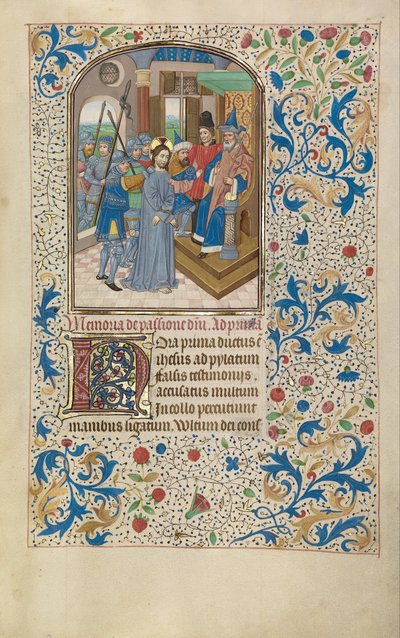 Memoria de passione dñi. Ad prima
Hora prima ductus e
ihesus ad pylatum
falsis testimonijs
accusatus multum
In collo percutiunt
manibus ligatum. Vltum dei cons